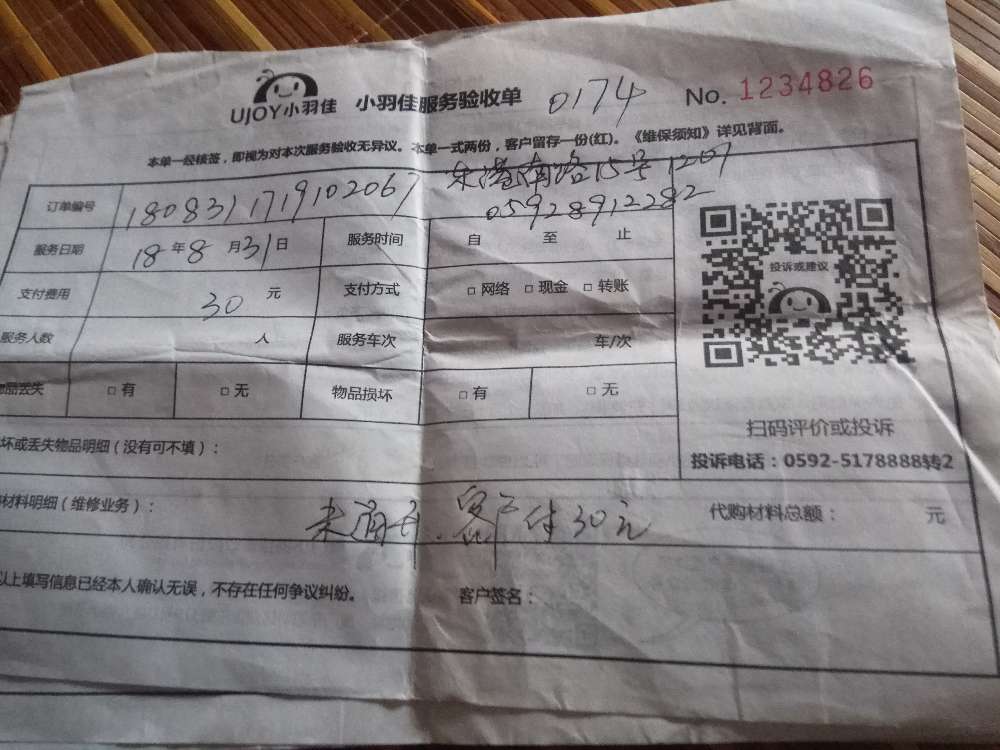 UJOY小羽佳 小羽佳服务验收单 0174 No. 1234826
本单一经核签，即视为对本次服务验收无异议。本单一式两份，客户留存一份(红)。《维保须知》详见背面。
订单编号 1808311719102067 东港南路15号1207
05928912282
服务日期 18年8月31日 服务时间 自 至 止
投诉或建议
支付费用 30元 支付方式 □网络 □现金 □转账
服务人数 人 服务车次 车/次
品丢失 □有 □无 物品损坏 □有 □无
扫码评价或投诉
坏或丢失物品明细（没有可不填）：
投诉电话：0592-5178888转2
材料明细（维修业务）： 未通开.客户付30元 代购材料总额： 元
以上填写信息已经本人确认无误，不存在任何争议纠纷。 客户签名：